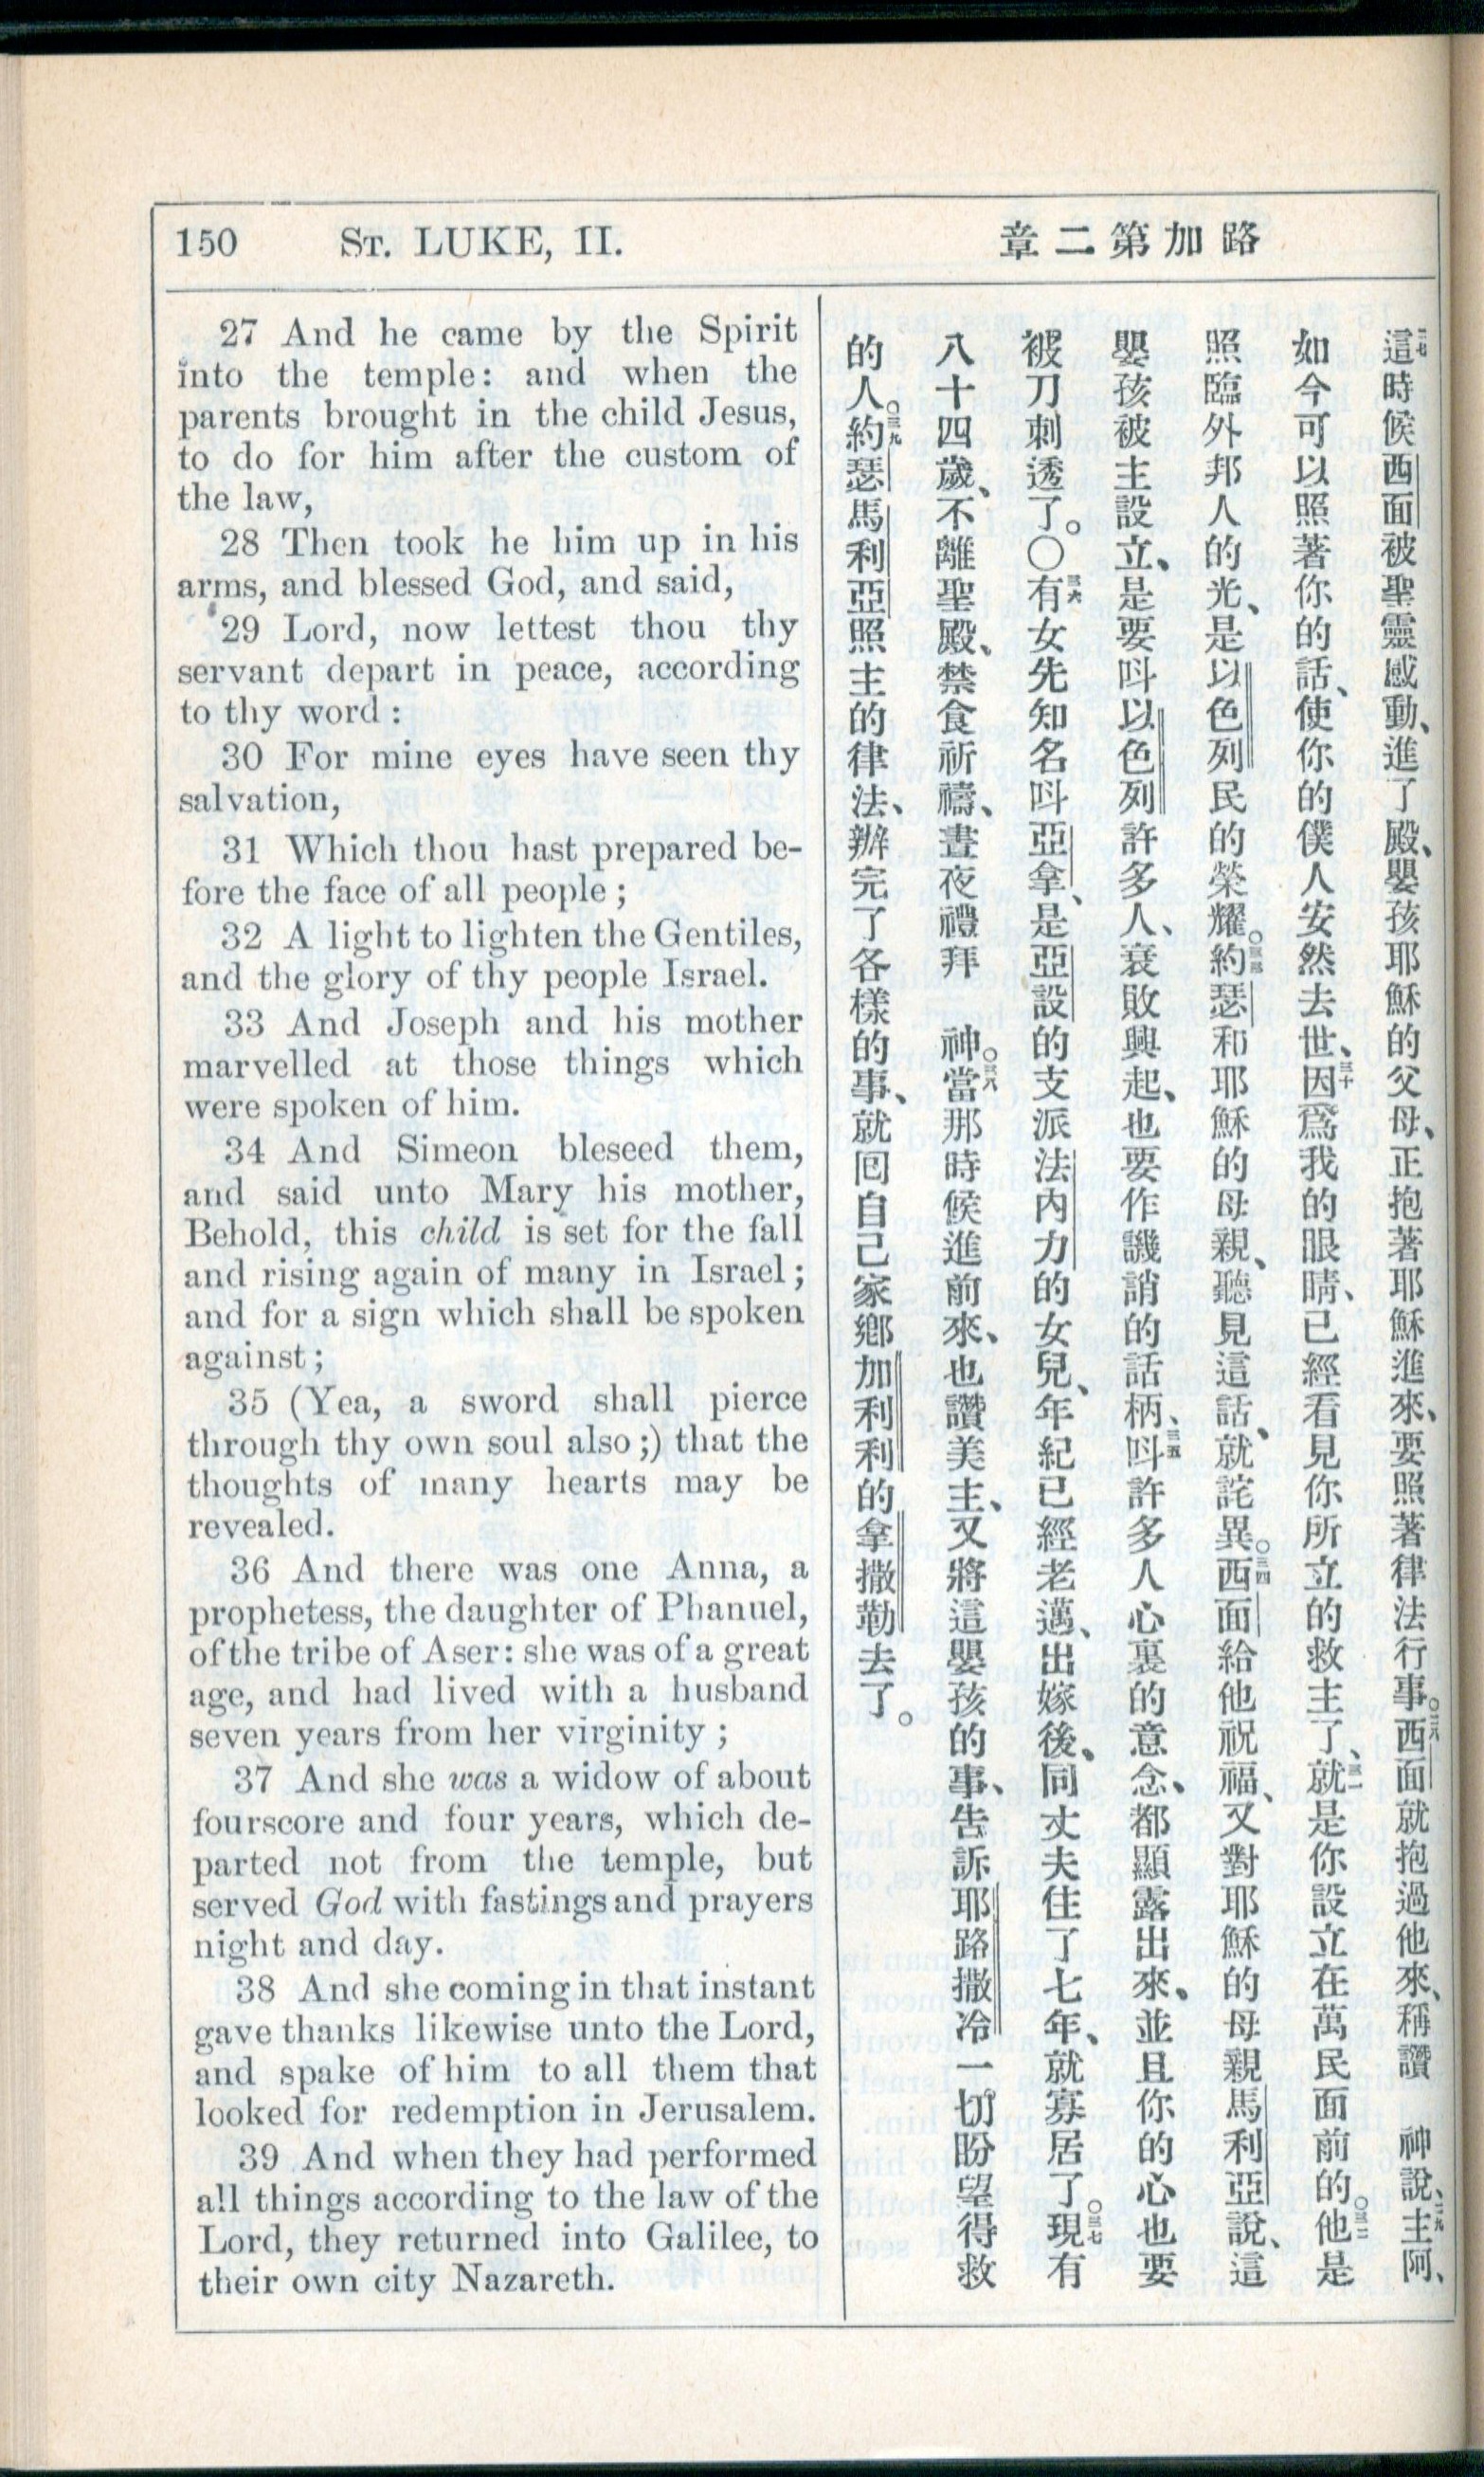 150 ST. LUKE, II.
路加第二章
27 And he came by the Spirit
into the temple: and when the
parents brought in the child Jesus,
to do for him after the custom of
the law,
28 Then took he him up in his
arms, and blessed God, and said,
29 Lord, now lettest thou thy
servant depart in peace, according
to thy word :
30 For mine eyes have seen thy
salvation,
31 Which thou hast prepared be-
fore the face of all people ;
32 A light to lighten the Gentiles,
and the glory of thy people Israel.
33 And Joseph and his mother
marvelled at those things which
were spoken of him.
34 And Simeon bleseed them,
and said unto Mary his mother,
Behold, this child is set for the fall
and rising again of many in Israel ;
and for a sign which shall be spoken
against ;
35 (Yea, a sword shall pierce
through thy own soul also ;) that the
thoughts of many hearts may be
revealed.
36 And there was one Anna, a
prophetess, the daughter of Phanuel,
of the tribe of Aser: she was of a great
age, and had lived with a husband
seven years from her virginity ;
37 And she was a widow of about
fourscore and four years, which de-
parted not from the temple, but
served God with fastings and prayers
night and day.
38 And she coming in that instant
gave thanks likewise unto the Lord,
and spake of him to all them that
looked for redemption in Jerusalem.
39 And when they had performed
all things according to the law of the
Lord, they returned into Galilee, to
their own city Nazareth.
二七這時候西面被聖靈感動、進了殿、嬰孩耶穌的父母、正抱著耶穌進來、要照著律法行事。○二八西面就抱過他來、稱讚 神說、二九主阿、
如今可以照著你的話、使你的僕人安然去世、三十因爲我的眼睛、已經看見你所立的救主了、三一就是你設立在萬民面前的。○三二他是
照臨外邦人的光、是以色列民的榮耀。○三三約瑟和耶穌的母親、聽見這話、就詫異。○三四西面給他祝福、又對耶穌的母親馬利亞說、這
嬰孩被主設立、是要呌以色列許多人、衰敗興起、也要作譏誚的話柄、三五呌許多人心裏的意念、都顯露出來、並且你的心也要
被刀刺透了。○三六有女先知名呌亞拿、是亞設的支派法內力的女兒、年紀已經老邁、出嫁後、同丈夫住了七年、就寡居了。○三七現有
八十四歲、不離聖殿、禁食祈禱、晝夜禮拜 神。○三八當那時候進前來、也讚美主、又將這嬰孩的事、告訴耶路撒冷一切盼望得救
的人。○三九約瑟馬利亞照主的律法、辦完了各樣的事、就囘自己家鄉加利利的拿撒勒去了。